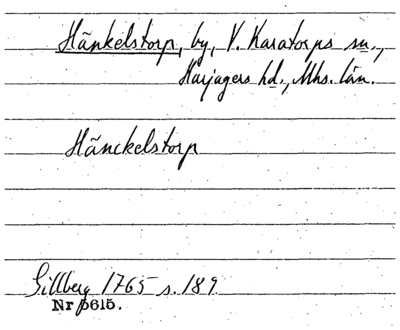 Hänkelstorp, by, V. Karatorps sn.,
Harjagers hd., Mhs. län.
Hänckelstorp
Gillberg 1765 s. 189
Nr 5615.